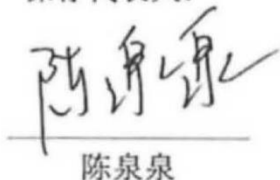 陈泉泉
陈泉泉